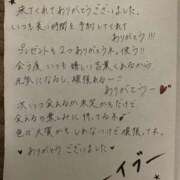 来てくれてありがとうございました。
いつも長い時間を予約してくれて
ありがとう!!!
プレゼントも2つありがとう、使う!!
会う度 いつも言葉くれるから
元気になるし、頑張れるー
ありがとうー
次いつ会えるか未定やけど
会えるの楽しみに待ってる
色々大変かもしれないけど頑張ってね
♥ありがとうございました♥
イブー